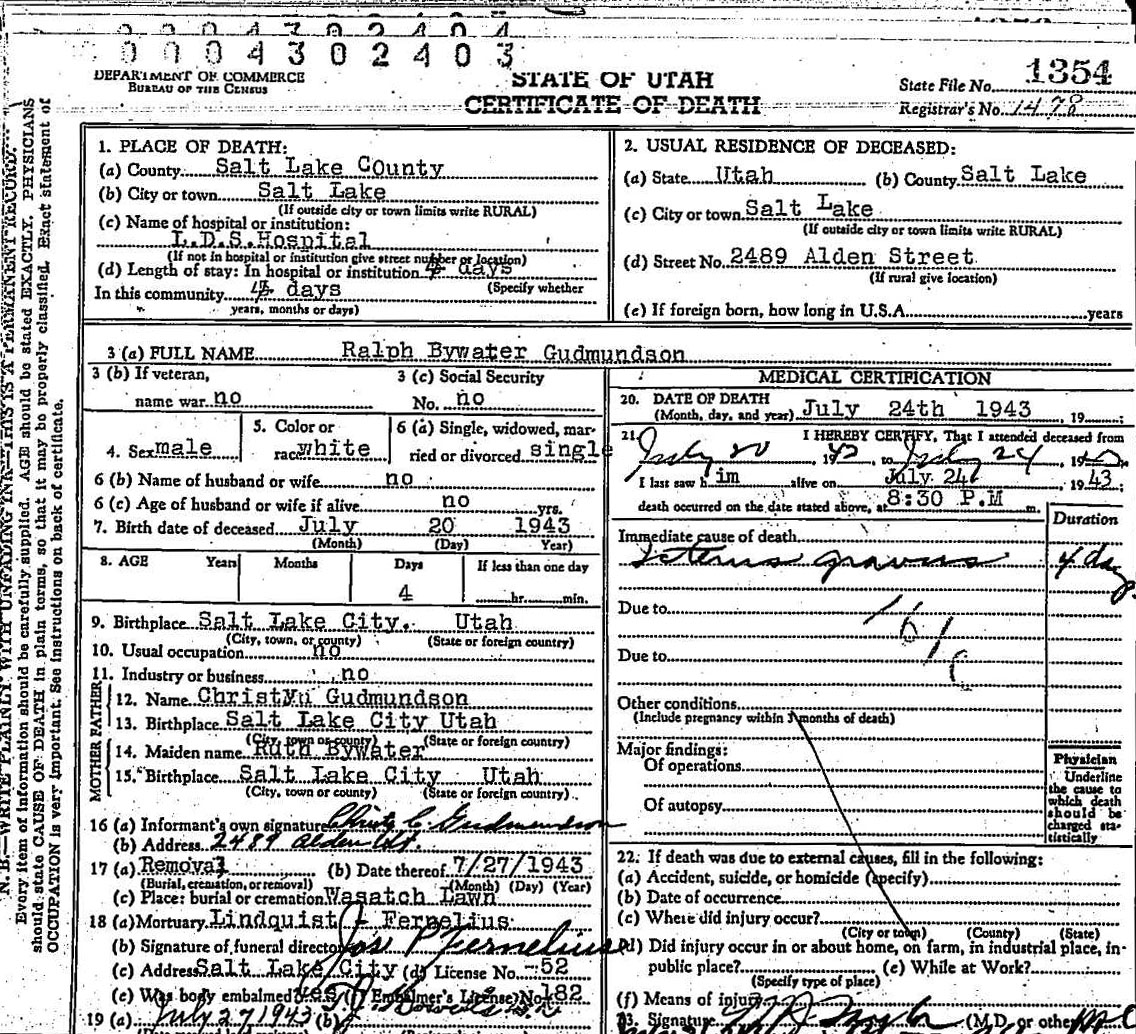 0 0 0 4 3 0 2 4 0 4
0 0 0 4 3 0 2 4 0 3
DEPARTMENT OF COMMERCE
BUREAU OF THE CENSUS
STATE OF UTAH
CERTIFICATE OF DEATH
State File No. 1354
Registrar's No. 1478
N. B.—WRITE PLAINLY WITH UNFADING INK—THIS IS A PERMANENT RECORD.
Every item of information should be carefully supplied. AGE should be stated EXACTLY. PHYSICIANS
should state CAUSE OF DEATH in plain terms, so that it may be properly classified. Exact statement of
OCCUPATION is very important. See instructions on back of certificate.
1. PLACE OF DEATH:
(a) County Salt Lake COunty
(b) City or town Salt Lake
(If outside city or town limits write RURAL)
(c) Name of hospital or institution:
L.D.S.Hospital
(If not in hospital or institution give street number or location)
(d) Length of stay: In hospital or institution 4 days
(Specify whether
In this community 4 days
years, months or days)
2. USUAL RESIDENCE OF DECEASED:
(a) State Utah (b) County Salt Lake
(c) City or town Salt Lake
(If outside city or town limits write RURAL)
(d) Street No. 2489 Alden Street
(If rural give location)
(e) If foreign born, how long in U.S.A. years
3 (a) FULL NAME Ralph Bywater Gudmundson
3 (b) If veteran,
name war no
3 (c) Social Security
No. no
4. Sex male
5. Color or
race white
6 (a) Single, widowed, mar-
ried or divorced single
6 (b) Name of husband or wife no
6 (c) Age of husband or wife if alive no yrs.
7. Birth date of deceased July 20 1943
(Month) (Day) Year)
8. AGE Years Months Days If less than one day
4 hr. min.
9. Birthplace Salt Lake City. Utah
(City, town, or county) (State or foreign country)
10. Usual occupation no
11. Industry or business no
FATHER
12. Name Christyn Gudmundson
13. Birthplace Salt Lake City Utah
(City, town or county) (State or foreign country)
MOTHER
14. Maiden name Ruth Bywater
15. Birthplace Salt Lake City Utah
(City, town or county) (State or foreign country)
16 (a) Informant's own signature C. Gudmundson
(b) Address 2489 Alden St.
17 (a) Removal (b) Date thereof 7/27/1943
(Burial, cremation, or removal) (Month) (Day) (Year)
(c) Place: burial or cremation Wasatch Lawn
18 (a) Mortuary Lindquist & Fernelius
(b) Signature of funeral director Jos P Fernelius
(c) Address Salt Lake City (d) License No. 52
(e) Was body embalmed? yes (f) Embalmer's License No 182
19 (a) July 27 1943 (b)
MEDICAL CERTIFICATION
20. DATE OF DEATH
(Month, day, and year) July 24th 1943 19 ;
21. I HEREBY CERTIFY, That I attended deceased from
July 20 , 1943 to July 24 , 1943
I last saw h im alive on July 24 , 1943
death occurred on the date stated above, at 8:30 P.M m.
Duration
Immediate cause of death
Icterus gravis 4 days
Due to
161c
Due to
Other conditions
(Include pregnancy within 3 months of death)
Major findings:
Of operations
Of autopsy
Physician
Underline
the cause to
which death
should be
charged sta-
tistically
22. If death was due to external causes, fill in the following:
(a) Accident, suicide, or homicide (specify)
(b) Date of occurrence
(c) Where did injury occur?
(City or town) (County) (State)
(d) Did injury occur in or about home, on farm, in industrial place, in-
public place? (e) While at Work?
(Specify type of place)
(f) Means of injury
23. Signature (M.D. or other)